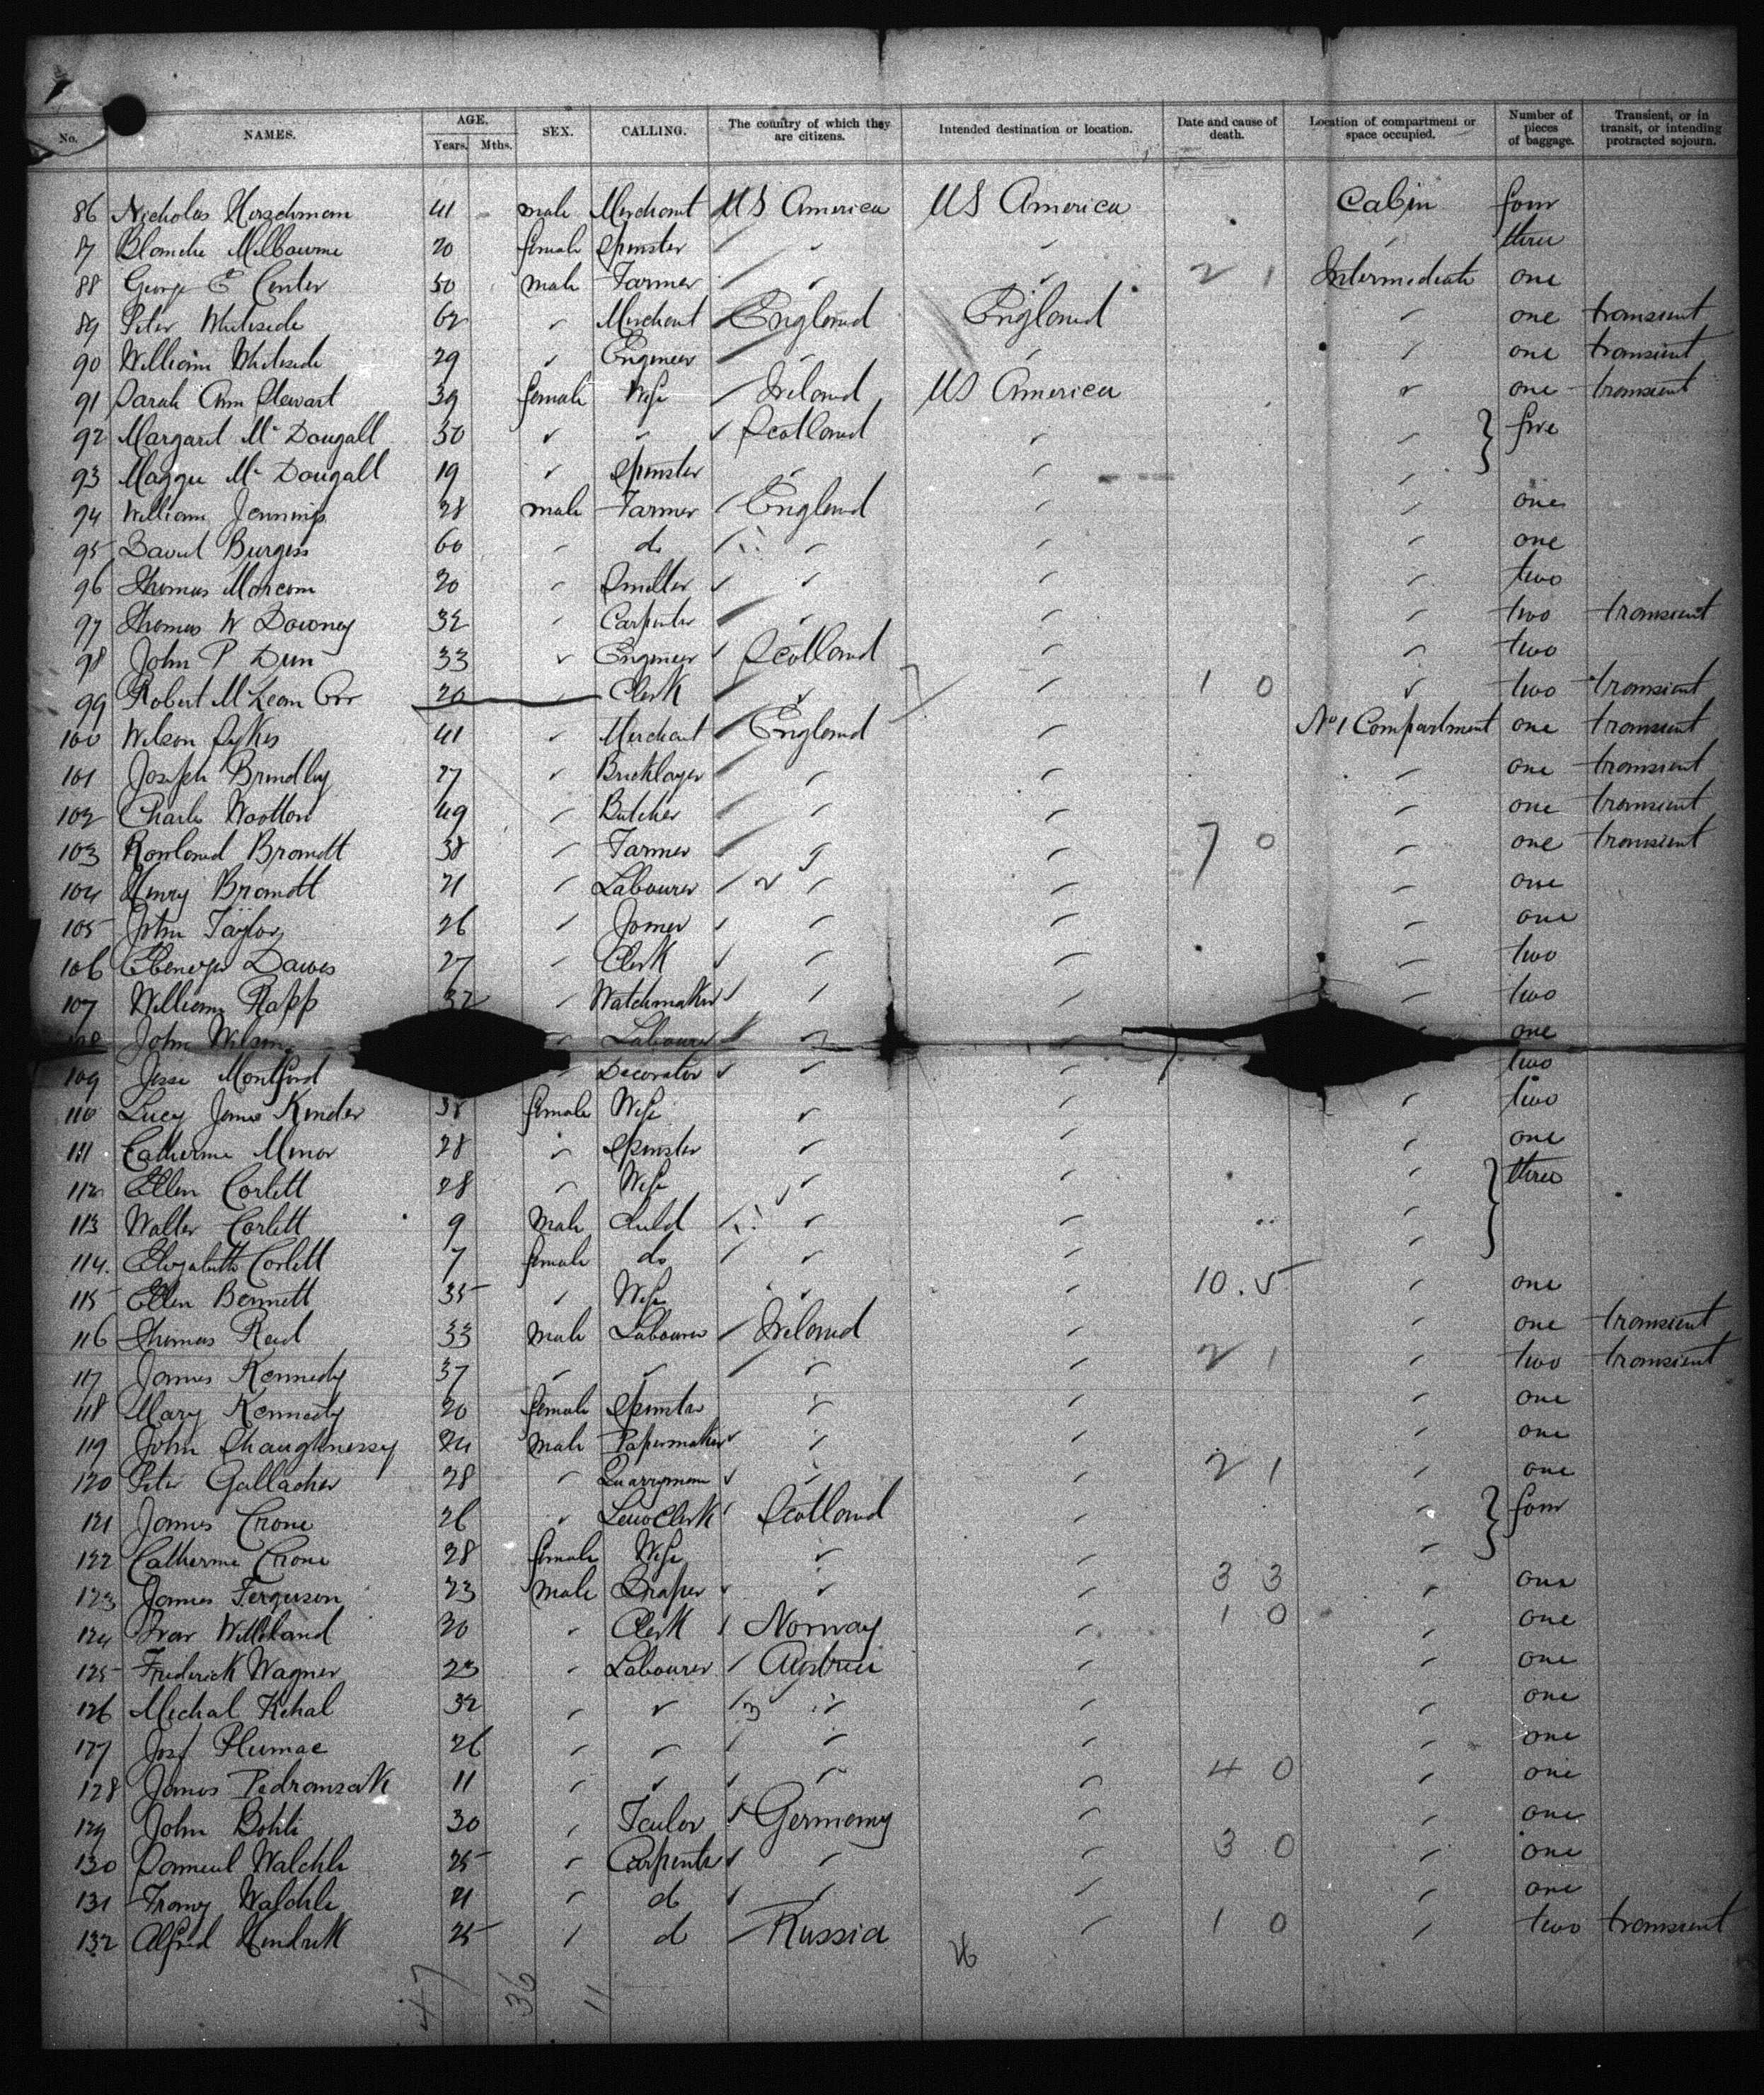 No. NAMES. AGE. Years. Mths. SEX. CALLING. The country of which they are citizens. Intended destination or location. Date and cause of death. Location of compartment or space occupied. Number of pieces of baggage. Transient, or in transit, or intending protracted sojourn.
86 Nicholas Herschman 41 male Merchant US America US America Cabin four
87 Blanche Melbourne 20 female Spinster three
88 George E Center 50 male Farmer 2 1 Intermediate one
89 Peter Whiteside 62 Merchant England England one transient
90 William Whiteside 29 Engineer one transient
91 Sarah Ann Stewart 39 female Wife Ireland US America one transient
92 Margaret Mc Dougall 30 Scotland five
93 Maggie Mc Dougall 19 Spinster
94 William Jennings 28 male Farmer England one
95 David Burgess 60 do one
96 Thomas Marcom 20 Smelter two
97 Thomas W Downey 32 Carpenter two transient
98 John P Dun 33 Engineer Scotland two
99 Robert McLean Orr 20 Clerk 1 0 two transient
100 Wilson Sykes 41 Merchant England No 1 Compartment one transient
101 Joseph Brindley 27 Bricklayer one transient
102 Charles Wootton 49 Butcher one transient
103 Rowland Bromdt 38 Farmer 7 0 one transient
104 Henry Bromdt 21 Labourer one
105 John Taylor 26 Joiner one
106 Ebenezer Dawes 27 Clerk two
107 William Rapp 32 Watchmaker two
108 John Wilson Labourer one
109 Jesse Montford Decorator two
110 Lucy Jane Kinder 38 female Wife two
111 Catherine Minor 28 Spinster one
112 Ellen Corlett 28 Wife three
113 Walter Corlett 9 Male Child
114. Elizabeth Corlett 7 female do
115 Ellen Bennett 35 Wife 10.5 one
116 Thomas Reid 33 male Labourer Ireland one transient
117 James Kennedy 37 2 1 two transient
118 Mary Kennedy 20 female Spinster one
119 John Shaughnessy 24 male Papermaker one
120 Peter Gallacher 28 Quarryman 2 1 one
121 James Crone 26 Law Clerk Scotland four
122 Catherine Crone 28 female Wife
123 James Ferguson 23 male Draper 3 3 one
124 Ivar 20 Clerk Norway 1 0 one
125 Frederick Wagner 23 Labourer Austria one
126 Michal Kihal 32 3 one
127 Josf Plumac 26 one
128 James 11 4 0 one
129 John Bohli 30 Tailor Germany one
130 Samuel Walchli 25 Carpenter 3 0 one
131 Franz Walchli 21 do one
132 Alfred Hendrik 25 do Russia 1 0 two transient
47 36 11